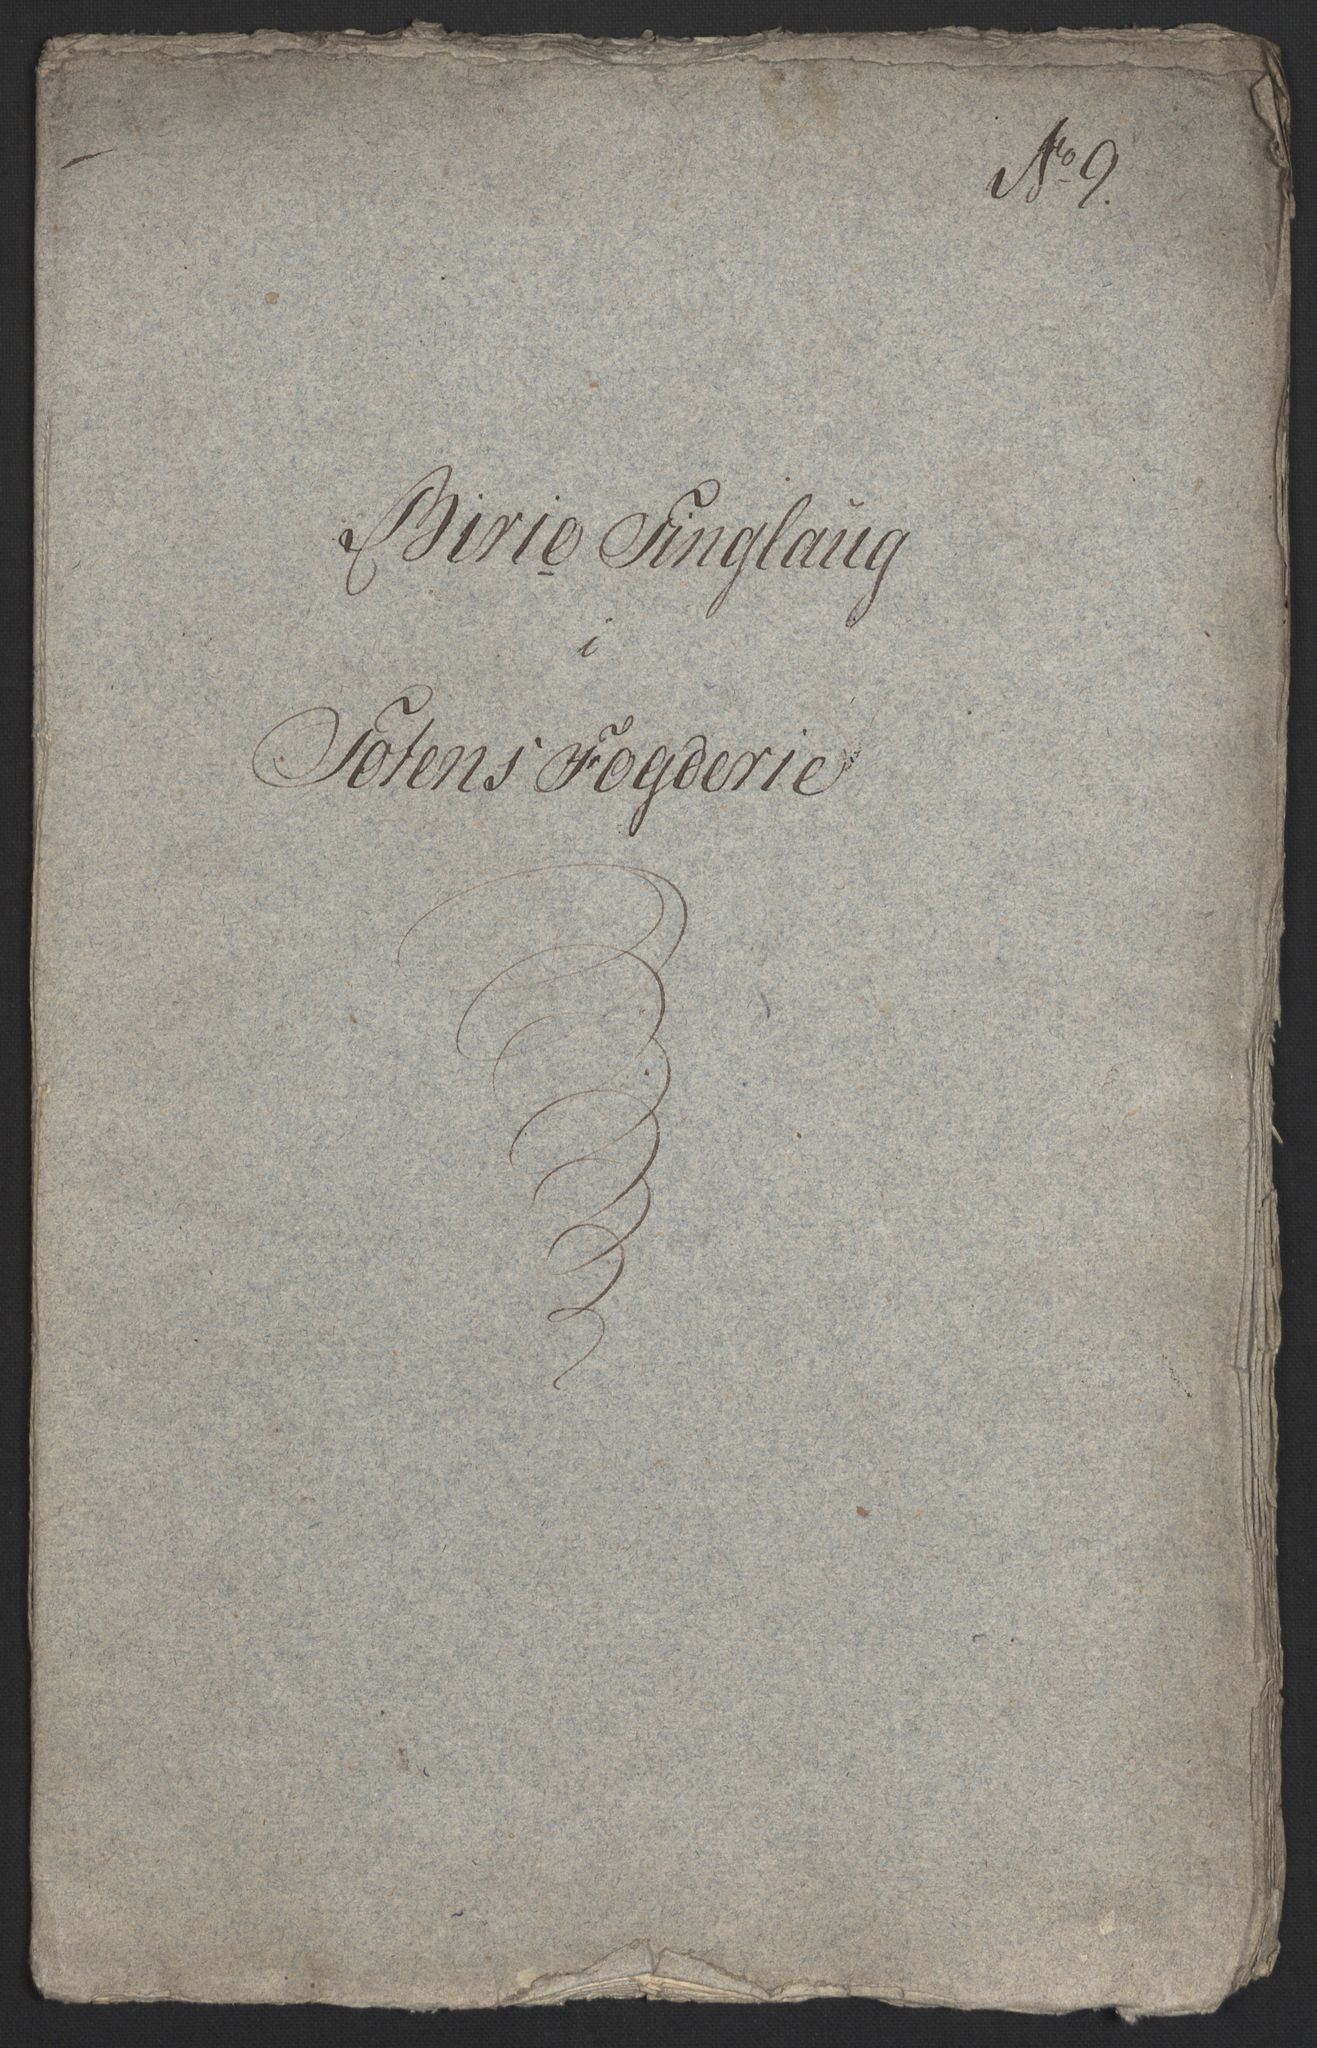 No 9.
Birie Tinglaug
i
Totens Fogderie